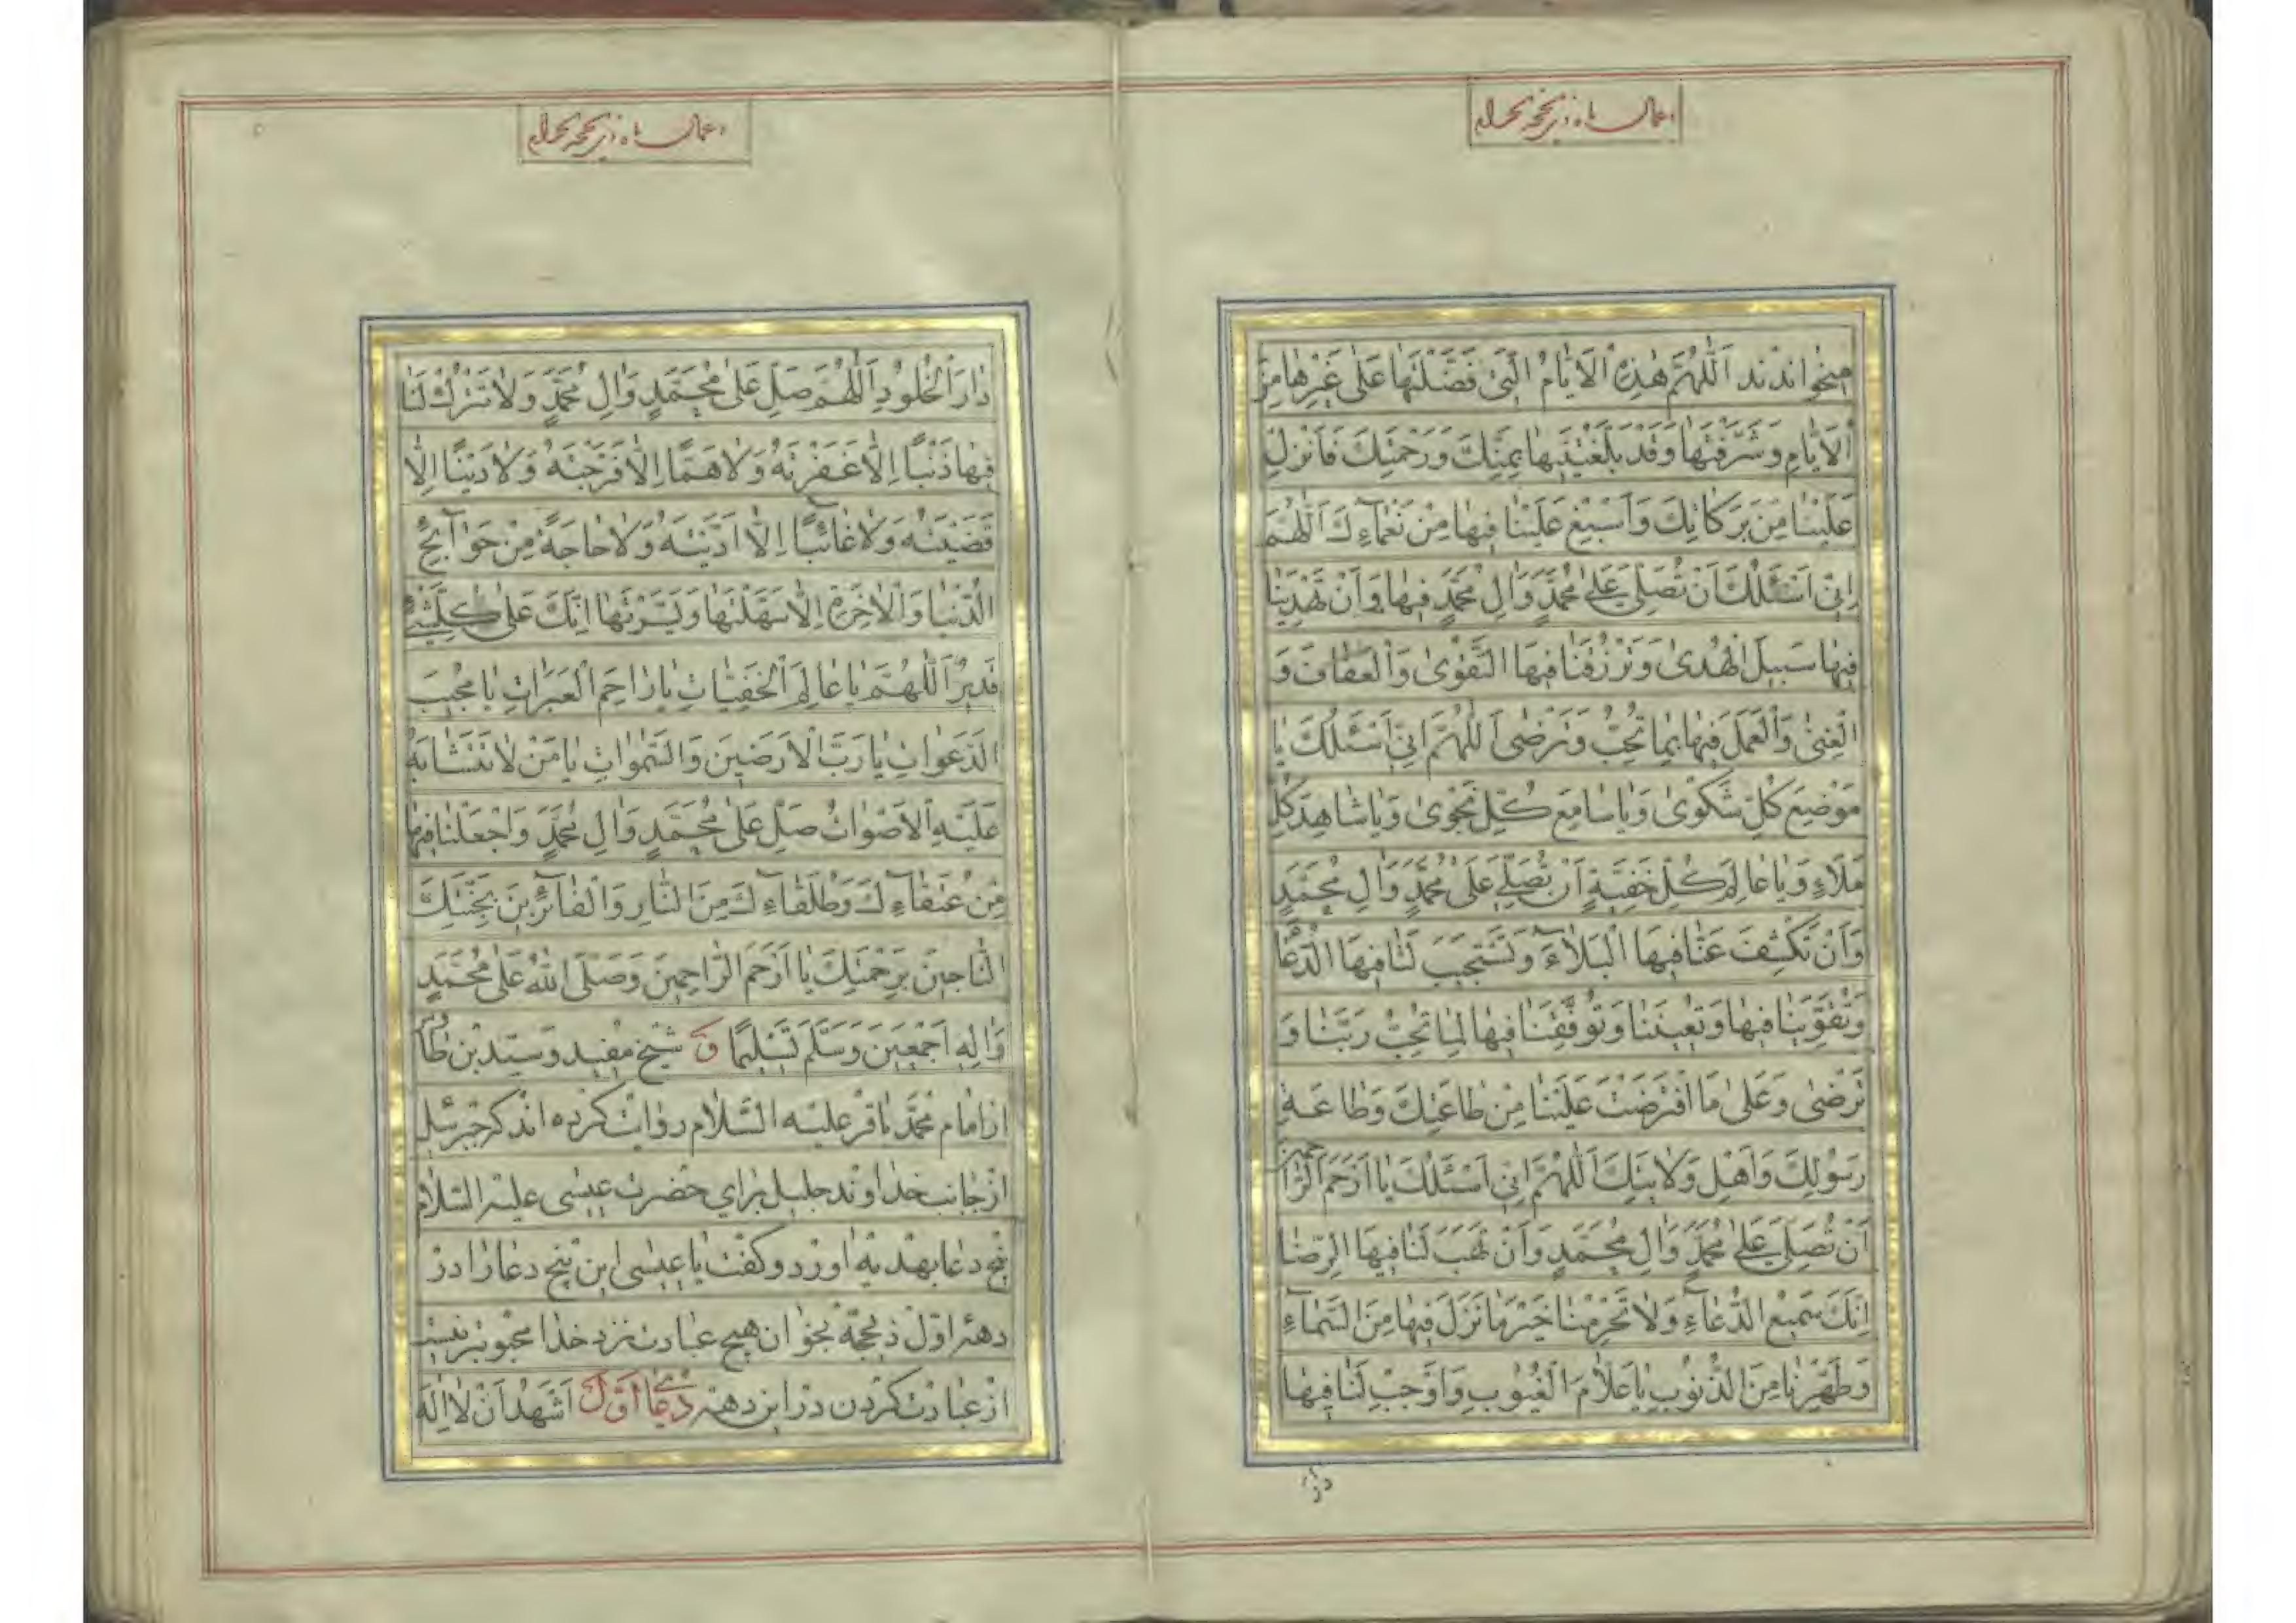 اعمال ماه ذیحجه الحرام
میخواندند اَللّٰهُمَّ هٰذِهِ الْاَیّٰامُ الَّتی فَضَّلْتَهٰا عَلیٰ غَیْرِهٰا مِنَ
الْاَیّٰامِ وَشَرَّفْتَهٰا وَقَدْ بَلَّغْتَنیهٰا بِمَنِّكَ وَرَحْمَتِكَ فَاَنْزِلْ
عَلَیْنٰا مِنْ بَرَكٰاتِكَ وَاَسْبِغْ عَلَیْنٰا فیهٰا مِنْ نَعْمٰآءِكَ اَللّٰهُمَّ
اِنّی اَسْئَلُكَ اَنْ تُصَلِّیَ عَلیٰ مُحَمَّدٍ وَاٰلِ مُحَمَّدٍ فیهٰا وَاَنْ تَهْدِیَنٰا
فیهٰا سَبیلَ الْهُدیٰ وَتَرْزُقَنٰا فیهَا التَّقْویٰ وَالْعَفٰافَ وَ
الْغِنیٰ وَالْعَمَلَ فیهٰا بِمٰا تُحِبُّ وَتَرْضیٰ اَللّٰهُمَّ اِنّی اَسْئَلُكَ یٰا
مَوْضِعَ كُلِّ شَكْویٰ وَیٰا سٰامِعَ كُلِّ نَجْویٰ وَیٰا شٰاهِدَ كُلِّ
مَلَاءٍ وَیٰا عٰالِمَ كُلِّ خَفِیَّةٍ اَنْ تُصَلِّیَ عَلیٰ مُحَمَّدٍ وَاٰلِ مُحَمَّدٍ
وَاَنْ تَكْشِفَ عَنّٰا فیهَا الْبَلٰآءَ وَتَسْتَجیبَ لَنٰا فیهَا الدُّعٰا
وَتُقَوِّیَنٰا فیهٰا وَتُعینَنٰا وَتُوَفِّقَنٰا فیهٰا لِمٰا تُحِبُّ رَبَّنٰا وَ
تَرْضیٰ وَعَلیٰ مَا افْتَرَضْتَ عَلَیْنٰا مِنْ طٰاعَتِكَ وَطٰاعَةِ
رَسُولِكَ وَاَهْلِ وَلٰایَتِكَ اَللّٰهُمَّ اِنّی اَسْئَلُكَ یٰا اَرْحَمَ الرّٰاحمین
اَنْ تُصَلِّیَ عَلیٰ مُحَمَّدٍ وَاٰلِ مُحَمَّدٍ وَاَنْ تَهَبَ لَنٰا فیهَا الرِّضٰا
اِنَّكَ سَمیعُ الدُّعٰآءِ وَلٰا تَحْرِمْنٰا خَیْرَ مٰا نَزَلَ فیهٰا مِنَ السَّمٰآءِ
وَطَهِّرْنٰا مِنَ الذُّنُوبِ یٰا عَلّٰامَ الْغُیُوبِ وَاَوْجِبْ لَنٰا فیهٰا
دار
اعمال ماه ذیحجه الحرام
دٰارَ الْخُلُودِ اَللّٰهُمَّ صَلِّ عَلیٰ مُحَمَّدٍ وَاٰلِ مُحَمَّدٍ وَلٰا تَتْرُكْ لَنٰا
فیهٰا ذَنْبًا اِلّٰا غَفَرْتَهُ وَلٰا هَمًّا اِلّٰا فَرَّجْتَهُ وَلٰا دَیْنًا اِلّٰا
قَضَیْتَهُ وَلٰا غٰائِبًا اِلّٰا اَدَّیْتَهُ وَلٰا حٰاجَةً مِنْ حَوٰآئِجِ
الدُّنْیٰا وَالْاٰخِرَةِ اِلّٰا سَهَّلْتَهٰا وَیَسَّرْتَهٰا اِنَّكَ عَلیٰ كُلِّشَیْءٍ
قَدیرٌ اَللّٰهُمَّ یٰا عٰالِمَ الْخَفِیّٰاتِ یٰا رٰاحِمَ الْعَبَرٰاتِ یٰا مُجیبَ
الدَّعَوٰاتِ یٰا رَبَّ الْاَرَضینَ وَالسَّمٰوٰاتِ یٰا مَنْ لٰا تَتَشٰابَهُ
عَلَیْهِ الْاَصْوٰاتُ صَلِّ عَلیٰ مُحَمَّدٍ وَاٰلِ مُحَمَّدٍ وَاجْعَلْنٰا فیهٰا
مِنْ عُتَقٰآءِكَ وَطُلَقٰآءِكَ مِنَ النّٰارِ وَالْفٰآئِزینَ بِجَنَّتِكَ
النّٰاجینَ بِرَحْمَتِكَ یٰا اَرْحَمَ الرّٰاحِمینَ وَصَلَّی اللّٰهُ عَلیٰ مُحَمَّدٍ
وَاٰلِهِ اَجْمَعینَ وَسَلَّمَ تَسْلیمًا و شیخ مفید و سیّد بن طاوس
از امام محمّد باقر علیه السّلام روایت کرده اند که جبرئیل
از جانب خداوند جلیل برای حضرت عیسی علیه السّلام
پنج دعا بهدیه اورد و گفت یا عیسی این پنج دعا را در
دهه اوّل ذیحجّه بخوان هیچ عبادت نزد خدا محبوبتر نیست
از عبادت کردن در این دهه دعای اوّل اَشْهَدُ اَنْ لٰا اِلٰهَ